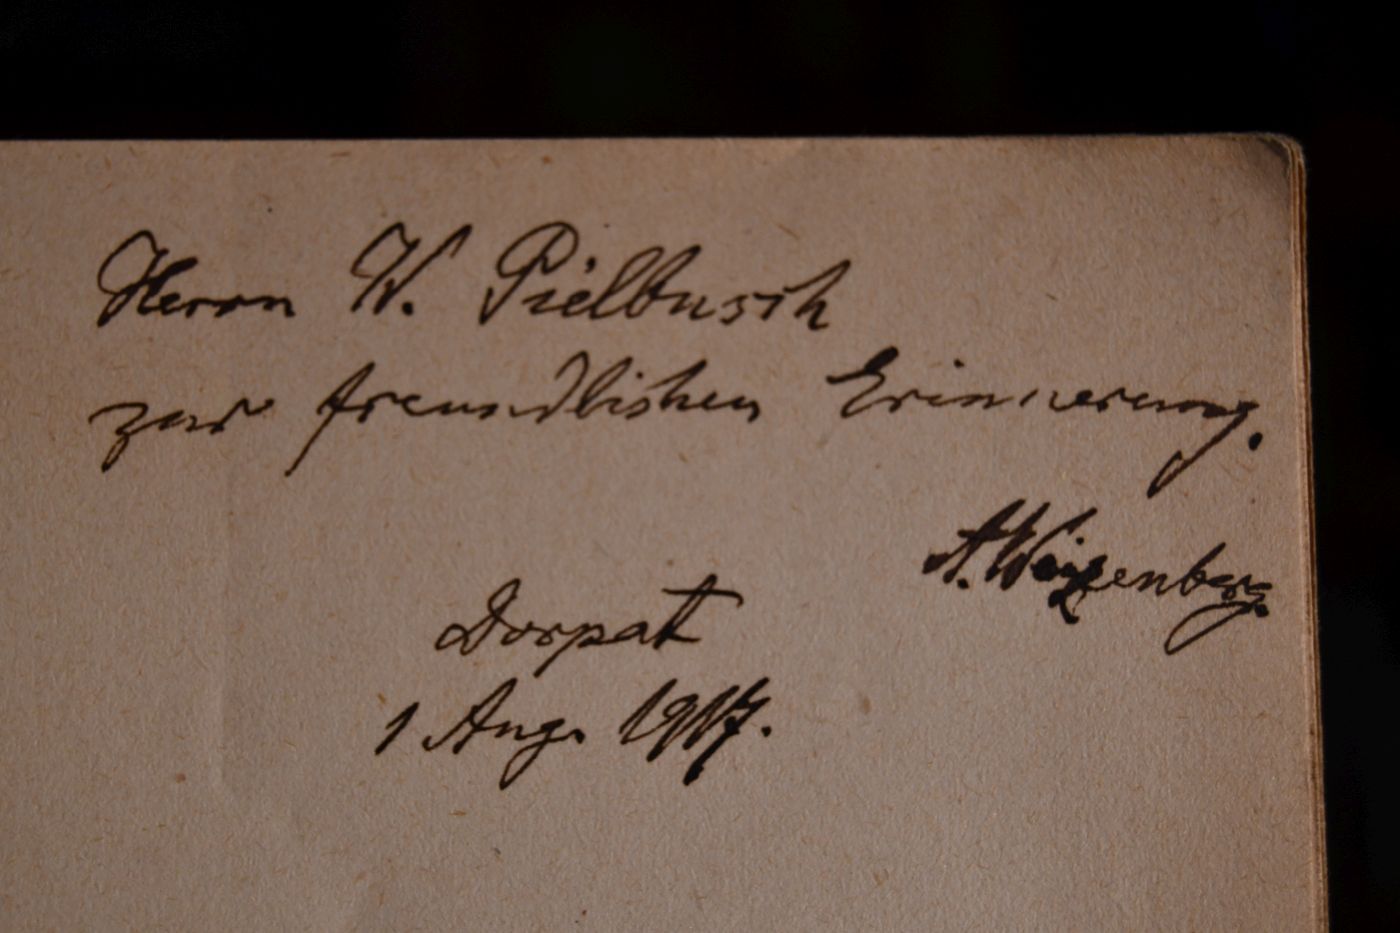 Herrn W. Pielbusch
zur freundlichen Erinnerung.
A. Weizenberg.
Dorpat
1 Aug. 1917.